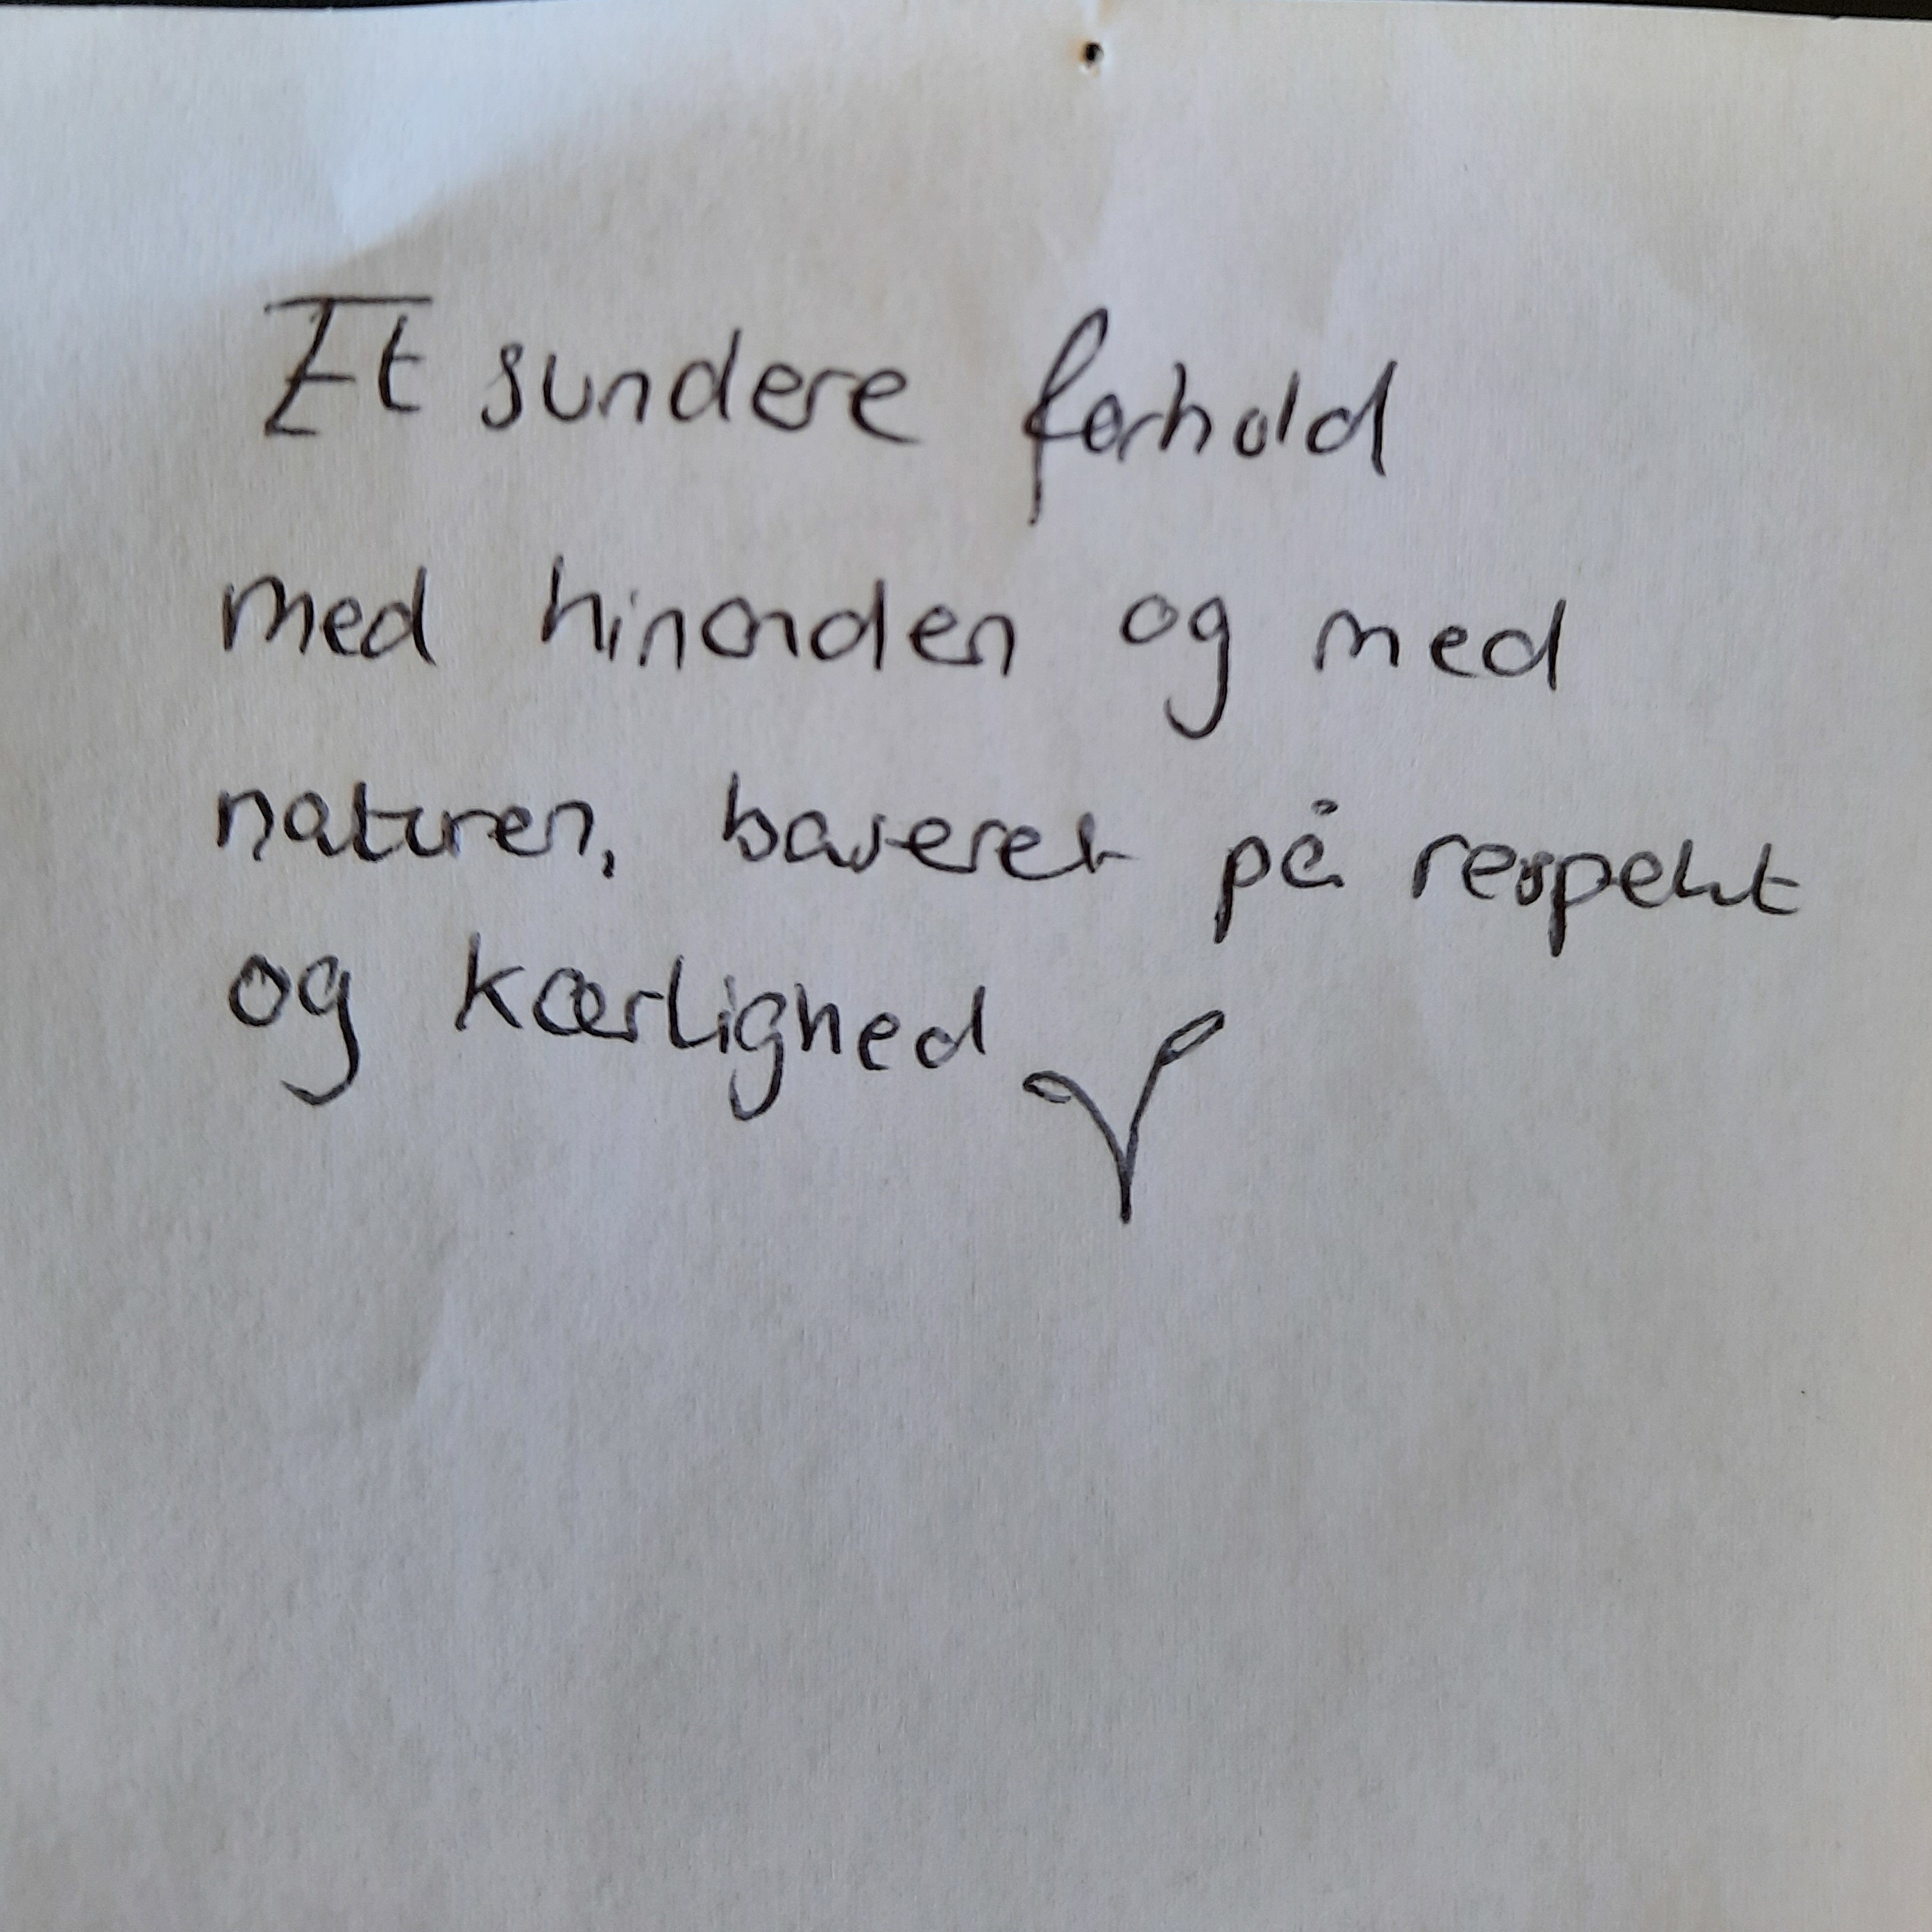 Et sundere forhold
med hinanden og med
naturen, baseret på respekt
og kærlighed